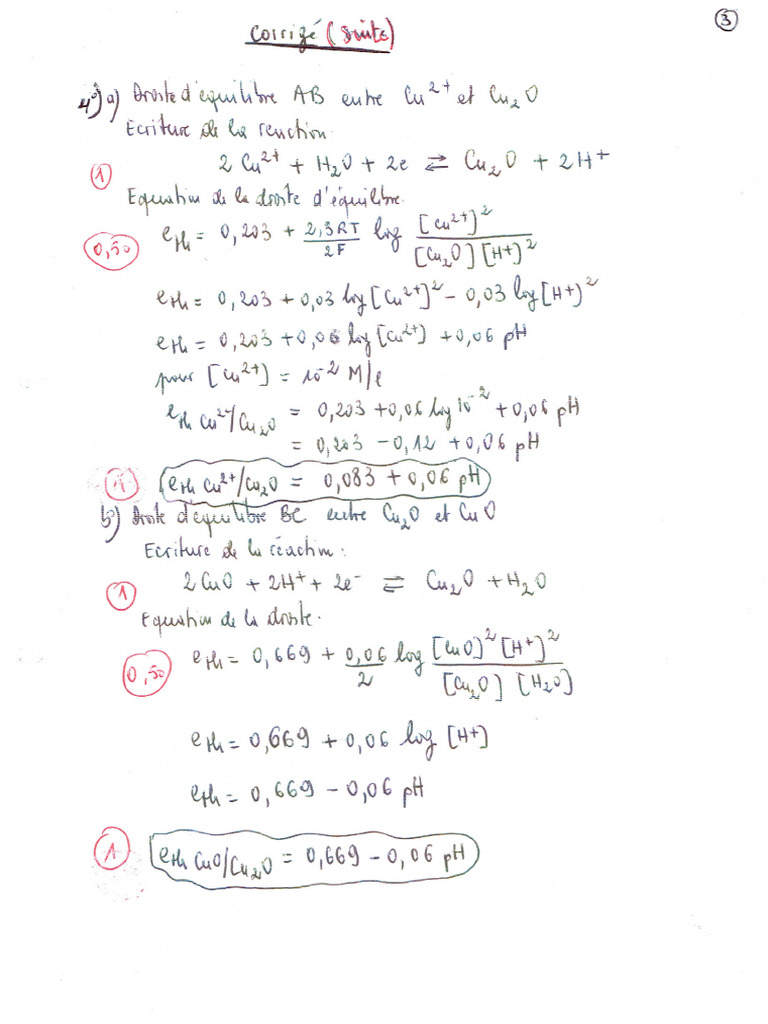 Corrigé (suite)
3
4°) a) Droite d'équilibre AB entre Cu²⁺ et Cu₂O
Ecriture de la reaction
1
2 Cu²⁺ + H₂O + 2e ⇌ Cu₂O + 2H⁺
Equation de la droite d'équilibre.
0,50
eth = 0,203 + 2,3RT/2F log [Cu²⁺]²/[Cu₂O][H⁺]²
eth = 0,203 + 0,03 log [Cu²⁺]² - 0,03 log [H⁺]²
eth = 0,203 + 0,06 log [Cu²⁺] + 0,06 pH
pour [Cu²⁺] = 10⁻² M/l
eth Cu²⁺/Cu₂O = 0,203 + 0,06 log 10⁻² + 0,06 pH
= 0,203 - 0,12 + 0,06 pH
1
eth Cu²⁺/Cu₂O = 0,083 + 0,06 pH
b) Droite d'équilibre BC entre Cu₂O et CuO
Ecriture de la réaction :
1
2 CuO + 2H⁺ + 2e⁻ ⇌ Cu₂O + H₂O
Equation de la droite.
0,50
eth = 0,669 + 0,06/2 log [CuO]² [H⁺]²/[Cu₂O] [H₂O]
eth = 0,669 + 0,06 log [H⁺]
eth = 0,669 - 0,06 pH
1
eth CuO/Cu₂O = 0,669 - 0,06 pH